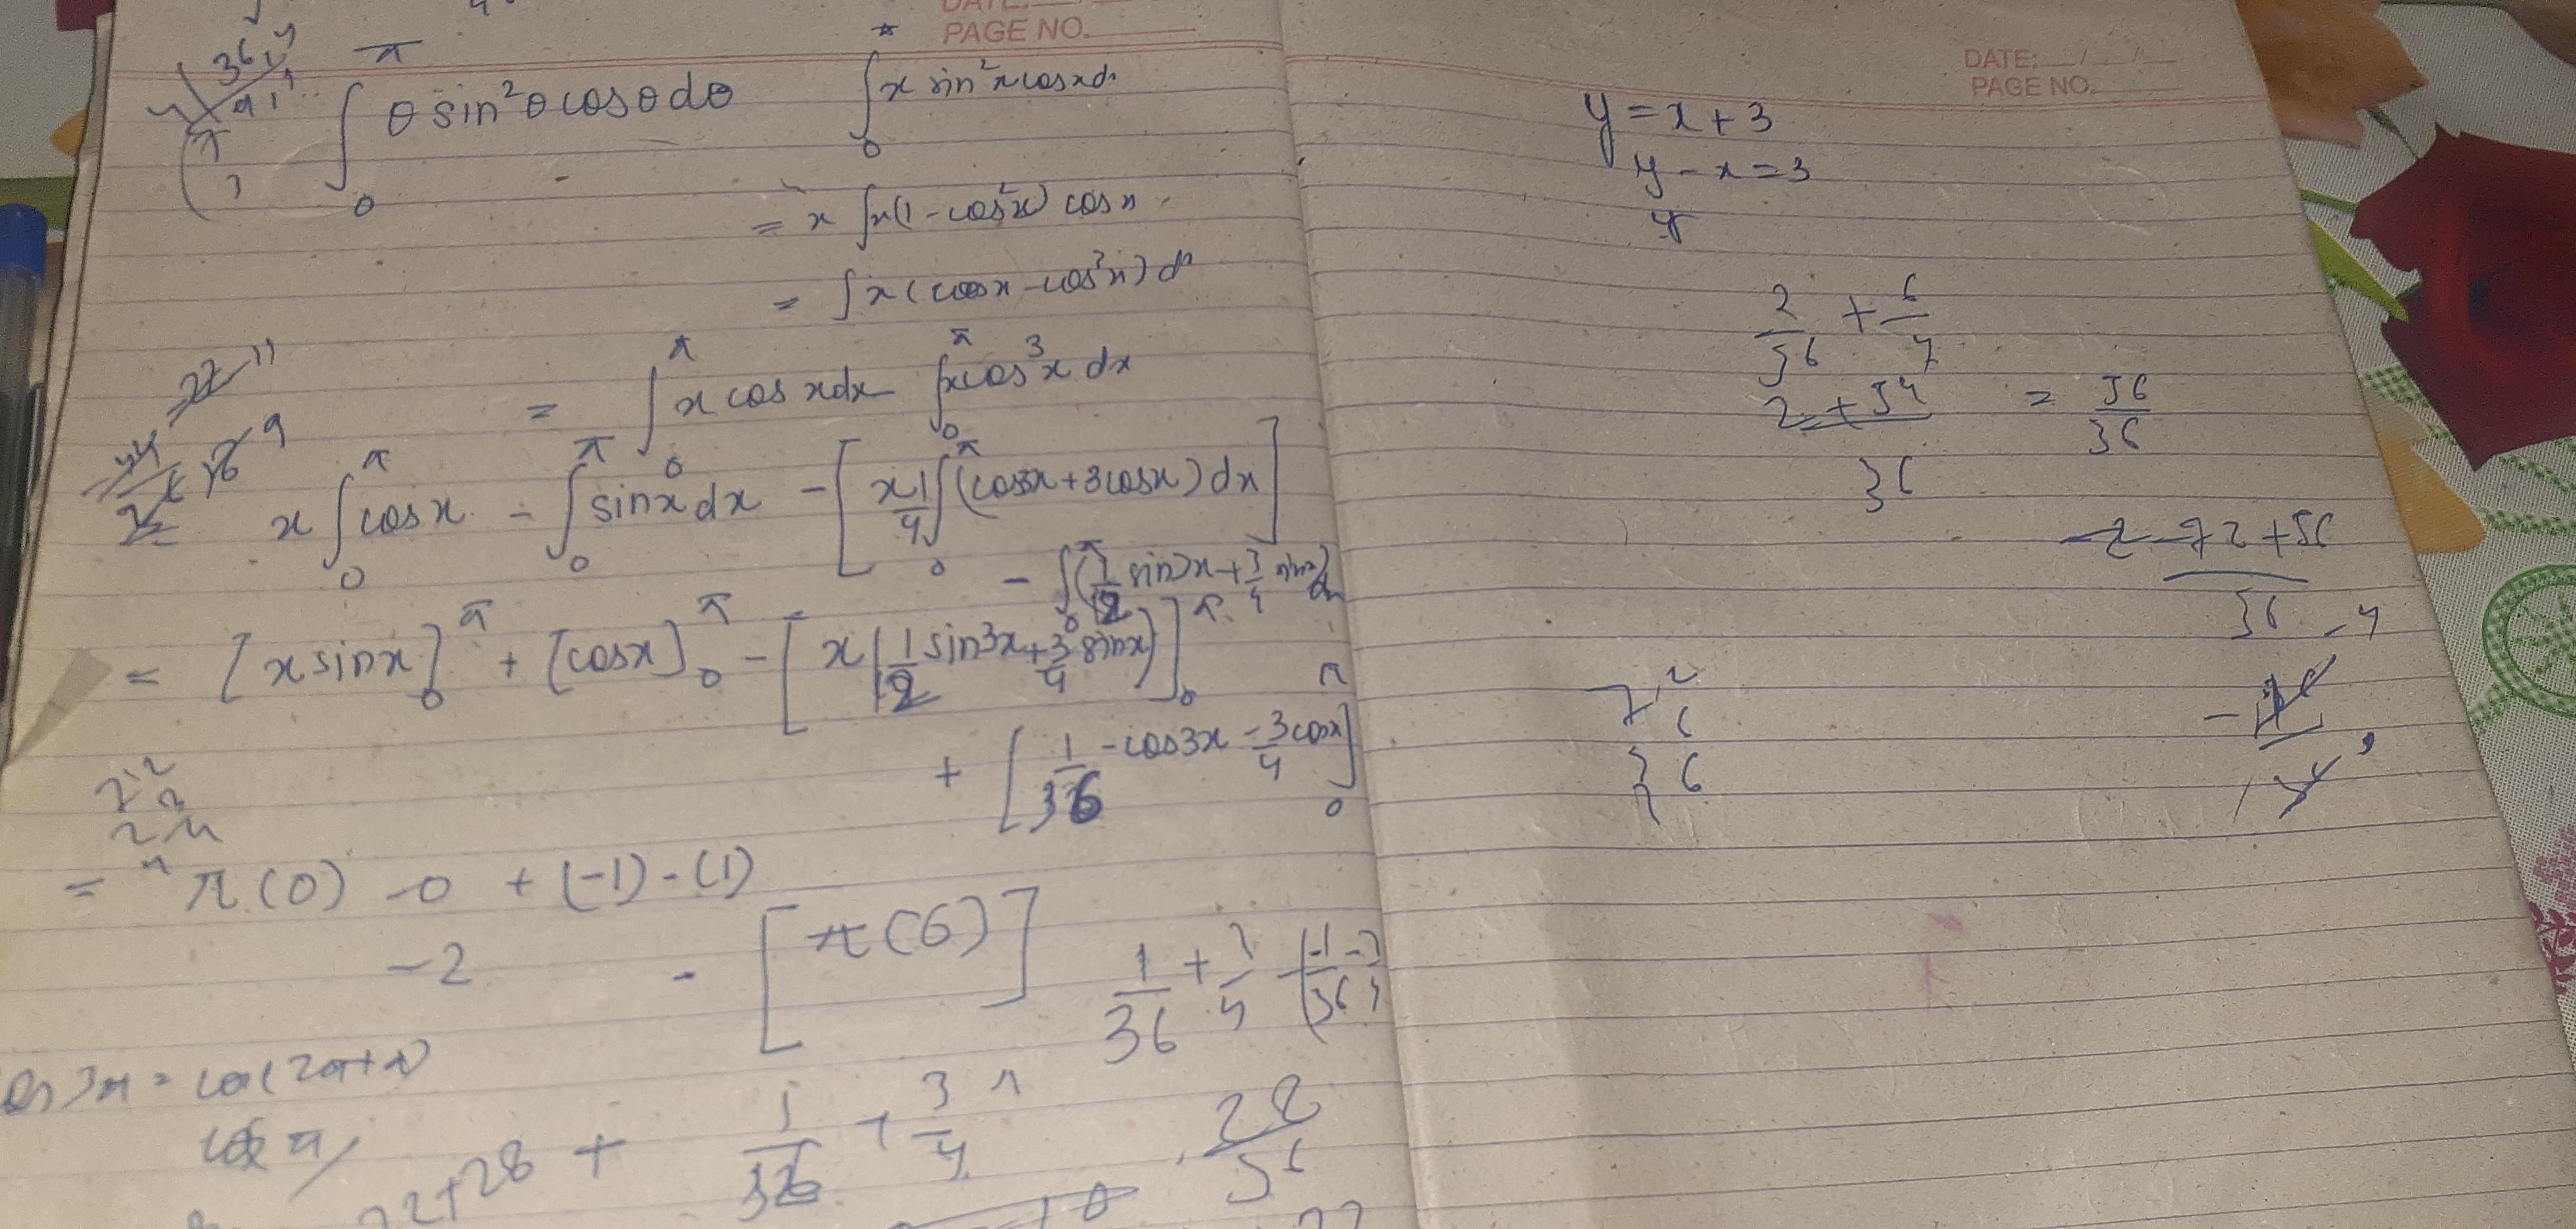 DATE:
PAGE NO.
36
π
∫ θ sin²θ cosθ dθ
0
∫ x sin²x cosx d
0
= x ∫x(1 - cos²x) cos x
= ∫x (cosx - cos³x) dx
= ∫₀^π x cos x dx - ∫₀^π x cos³x dx
x ∫₀^π cos x - ∫₀^π sin x dx - [x 1/4 ∫₀^π (cos3x + 3cosx) dx]
- ∫₀^π (1/12 sin3x + 3/4 sinx) dx
= [x sin x]₀^π + [cosx]₀^π - [x(1/12 sin3x + 3/4 sinx)]₀^π
+ [1/36 - cos3x - 3/4 cosx]₀^π
= π(0) - 0 + (-1) - (1)
-2 - [π(0)] 1/36 + 3/4 - (-1/36 - 3/4
cos 3π = cos(2π + π)
cos π
22 + 28 + 1/36 + 3/4
28/36
DATE: / /
PAGE NO.
y = x + 3
y - x = 3
y
2/36 + 6/4
2 + 54 / 36 = 56/36
-72 + 56
36
36